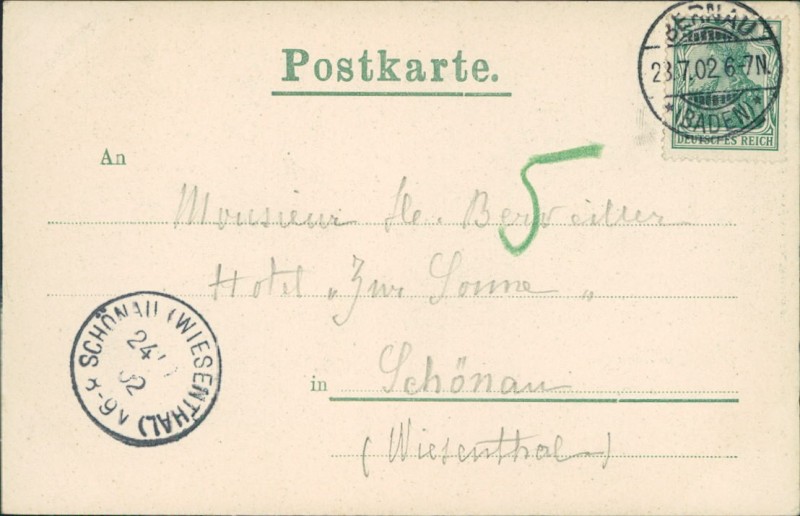 BERNAU
23.7.02 6-7N.
* (BADEN) *
DEUTSCHES REICH
Postkarte.
An
5
Monsieur
Hotel „Zur Sonne"
SCHÖNAU (WIESENTHAL)
24
8-9V
in Schönau
(Wiesenthal)